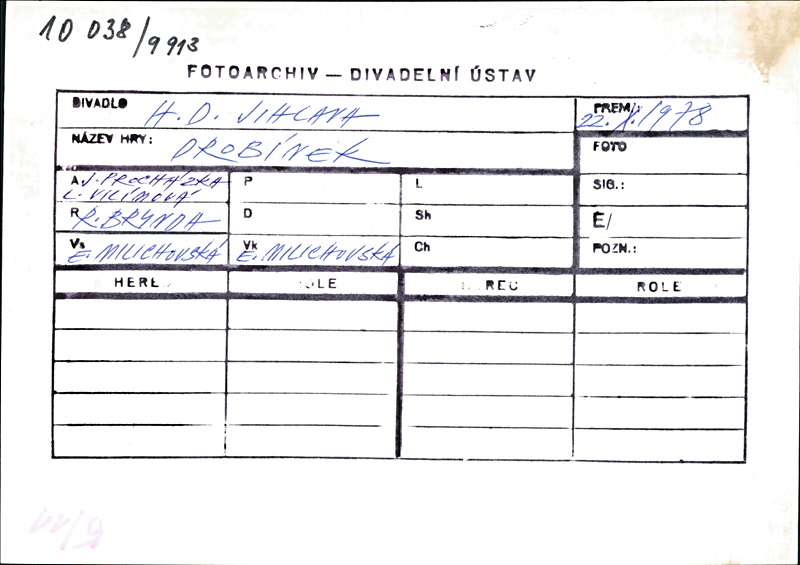 10 038/9 913
FOTOARCHIV — DIVADELNÍ ÚSTAV
DIVADLO H. D. JIHLAVA
PREM.: 22. X. 1978
NÁZEV HRY: DROBÍNEK
FOTO
A J. PROCHÁZKA
L. VILÍMOVÁ
P
L
SIG.:
R R. BRYNDA
D
Sh
Ė/
Vs E. MILICHOVSKÁ
Vk E. MILICHOVSKÁ
Ch
POZN.:
HERE
OLE
REC
ROLE